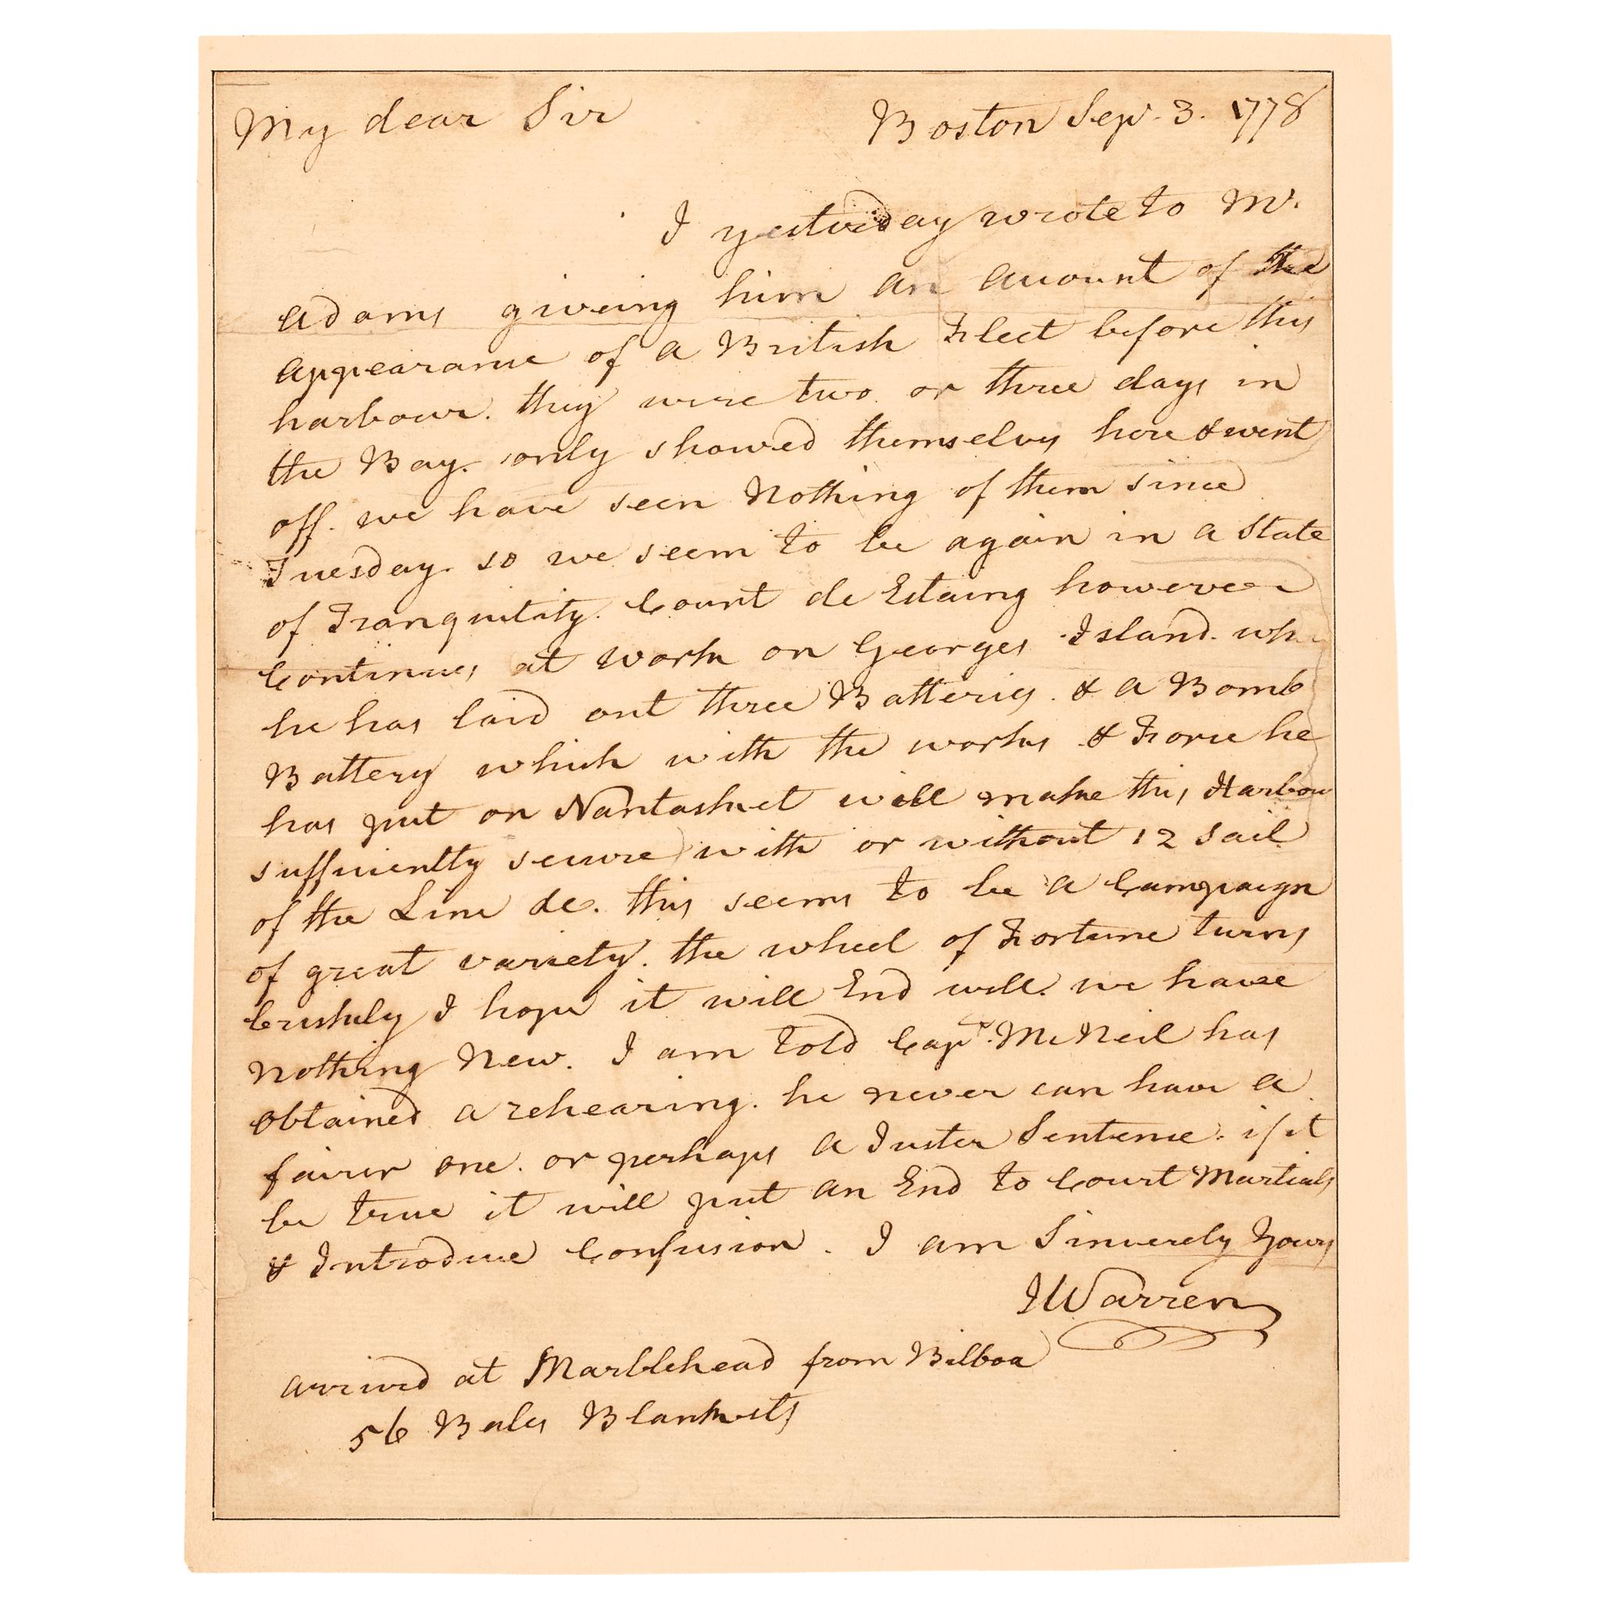 My dear Sir
Boston Sep. 3. 1778
I yesterday wrote to Mr.
Adams giveing him an account of the
appearance of a British Fleet before this
harbour. they were two or three days in
the Bay. only showed themselves here & went
off. we have seen Nothing of them since
Tuesday. so we seem to be again in a State
of Tranquility. Count de Estaing however
Continues at work on Georges Island. wh
he has laid out three Batteries. & a Bomb
Battery which with the works & Force he
has put on Nantasket will make this Harbour
sufficiently secure with or without 12 Sail
of the Line &c. this seems to be a Campaign
of great variety. the wheel of Fortune turns
briskly I hope it will End well. we have
Nothing New. I am told Capt. McNeil has
obtained a rehearing. he never can have a
fairer one. or perhaps a Juster Sentence. if it
be true it will put an End to Court Martials
& Introduce Confusion. I am Sincerely Yours
JWarren
arrived at Marblehead from Bilboa
56 Bales Blankets